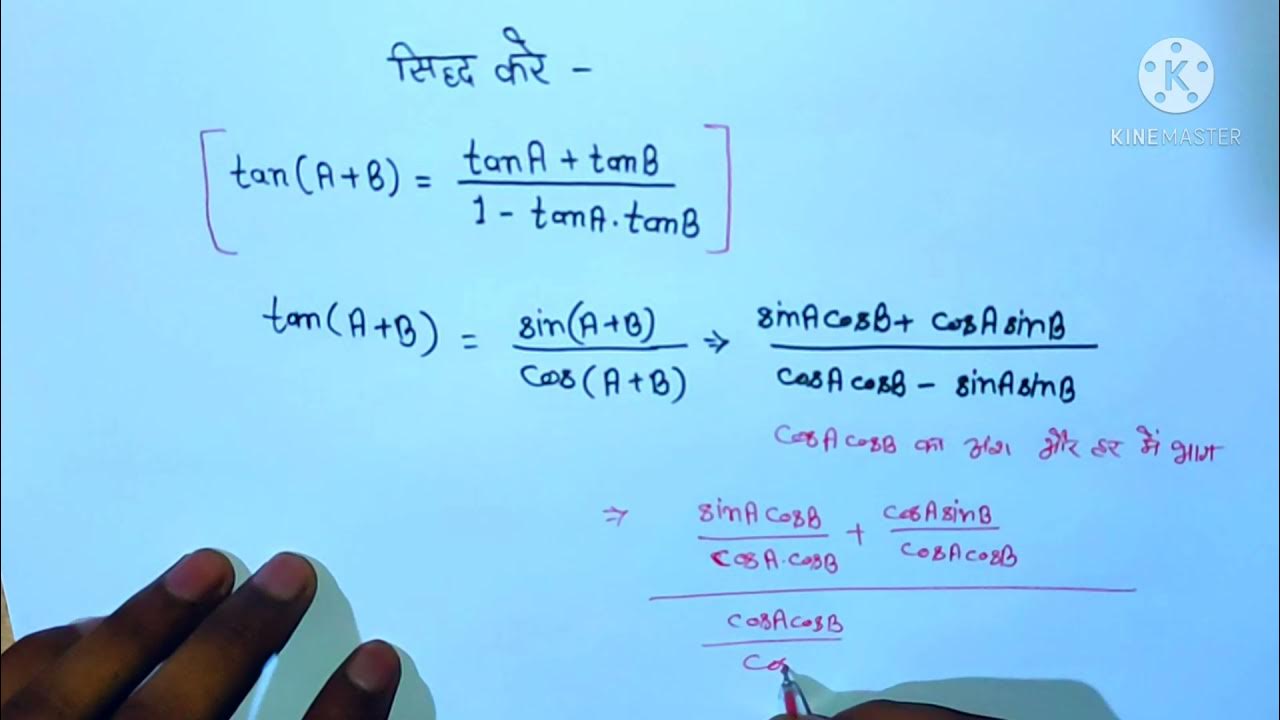 सिद्ध करे -
tan(A+B) = tanA + tanB / 1 - tanA.tanB
tan(A+B) = sin(A+B) / cos(A+B) ⇒ sinAcosB + cosAsinB / cosAcosB - sinAsinB
cosAcosB का अंश और हर में भाग
⇒ sinAcosB / cosA.cosB + cosAsinB / cosAcosB
cosAcosB
cos
KINEMASTER